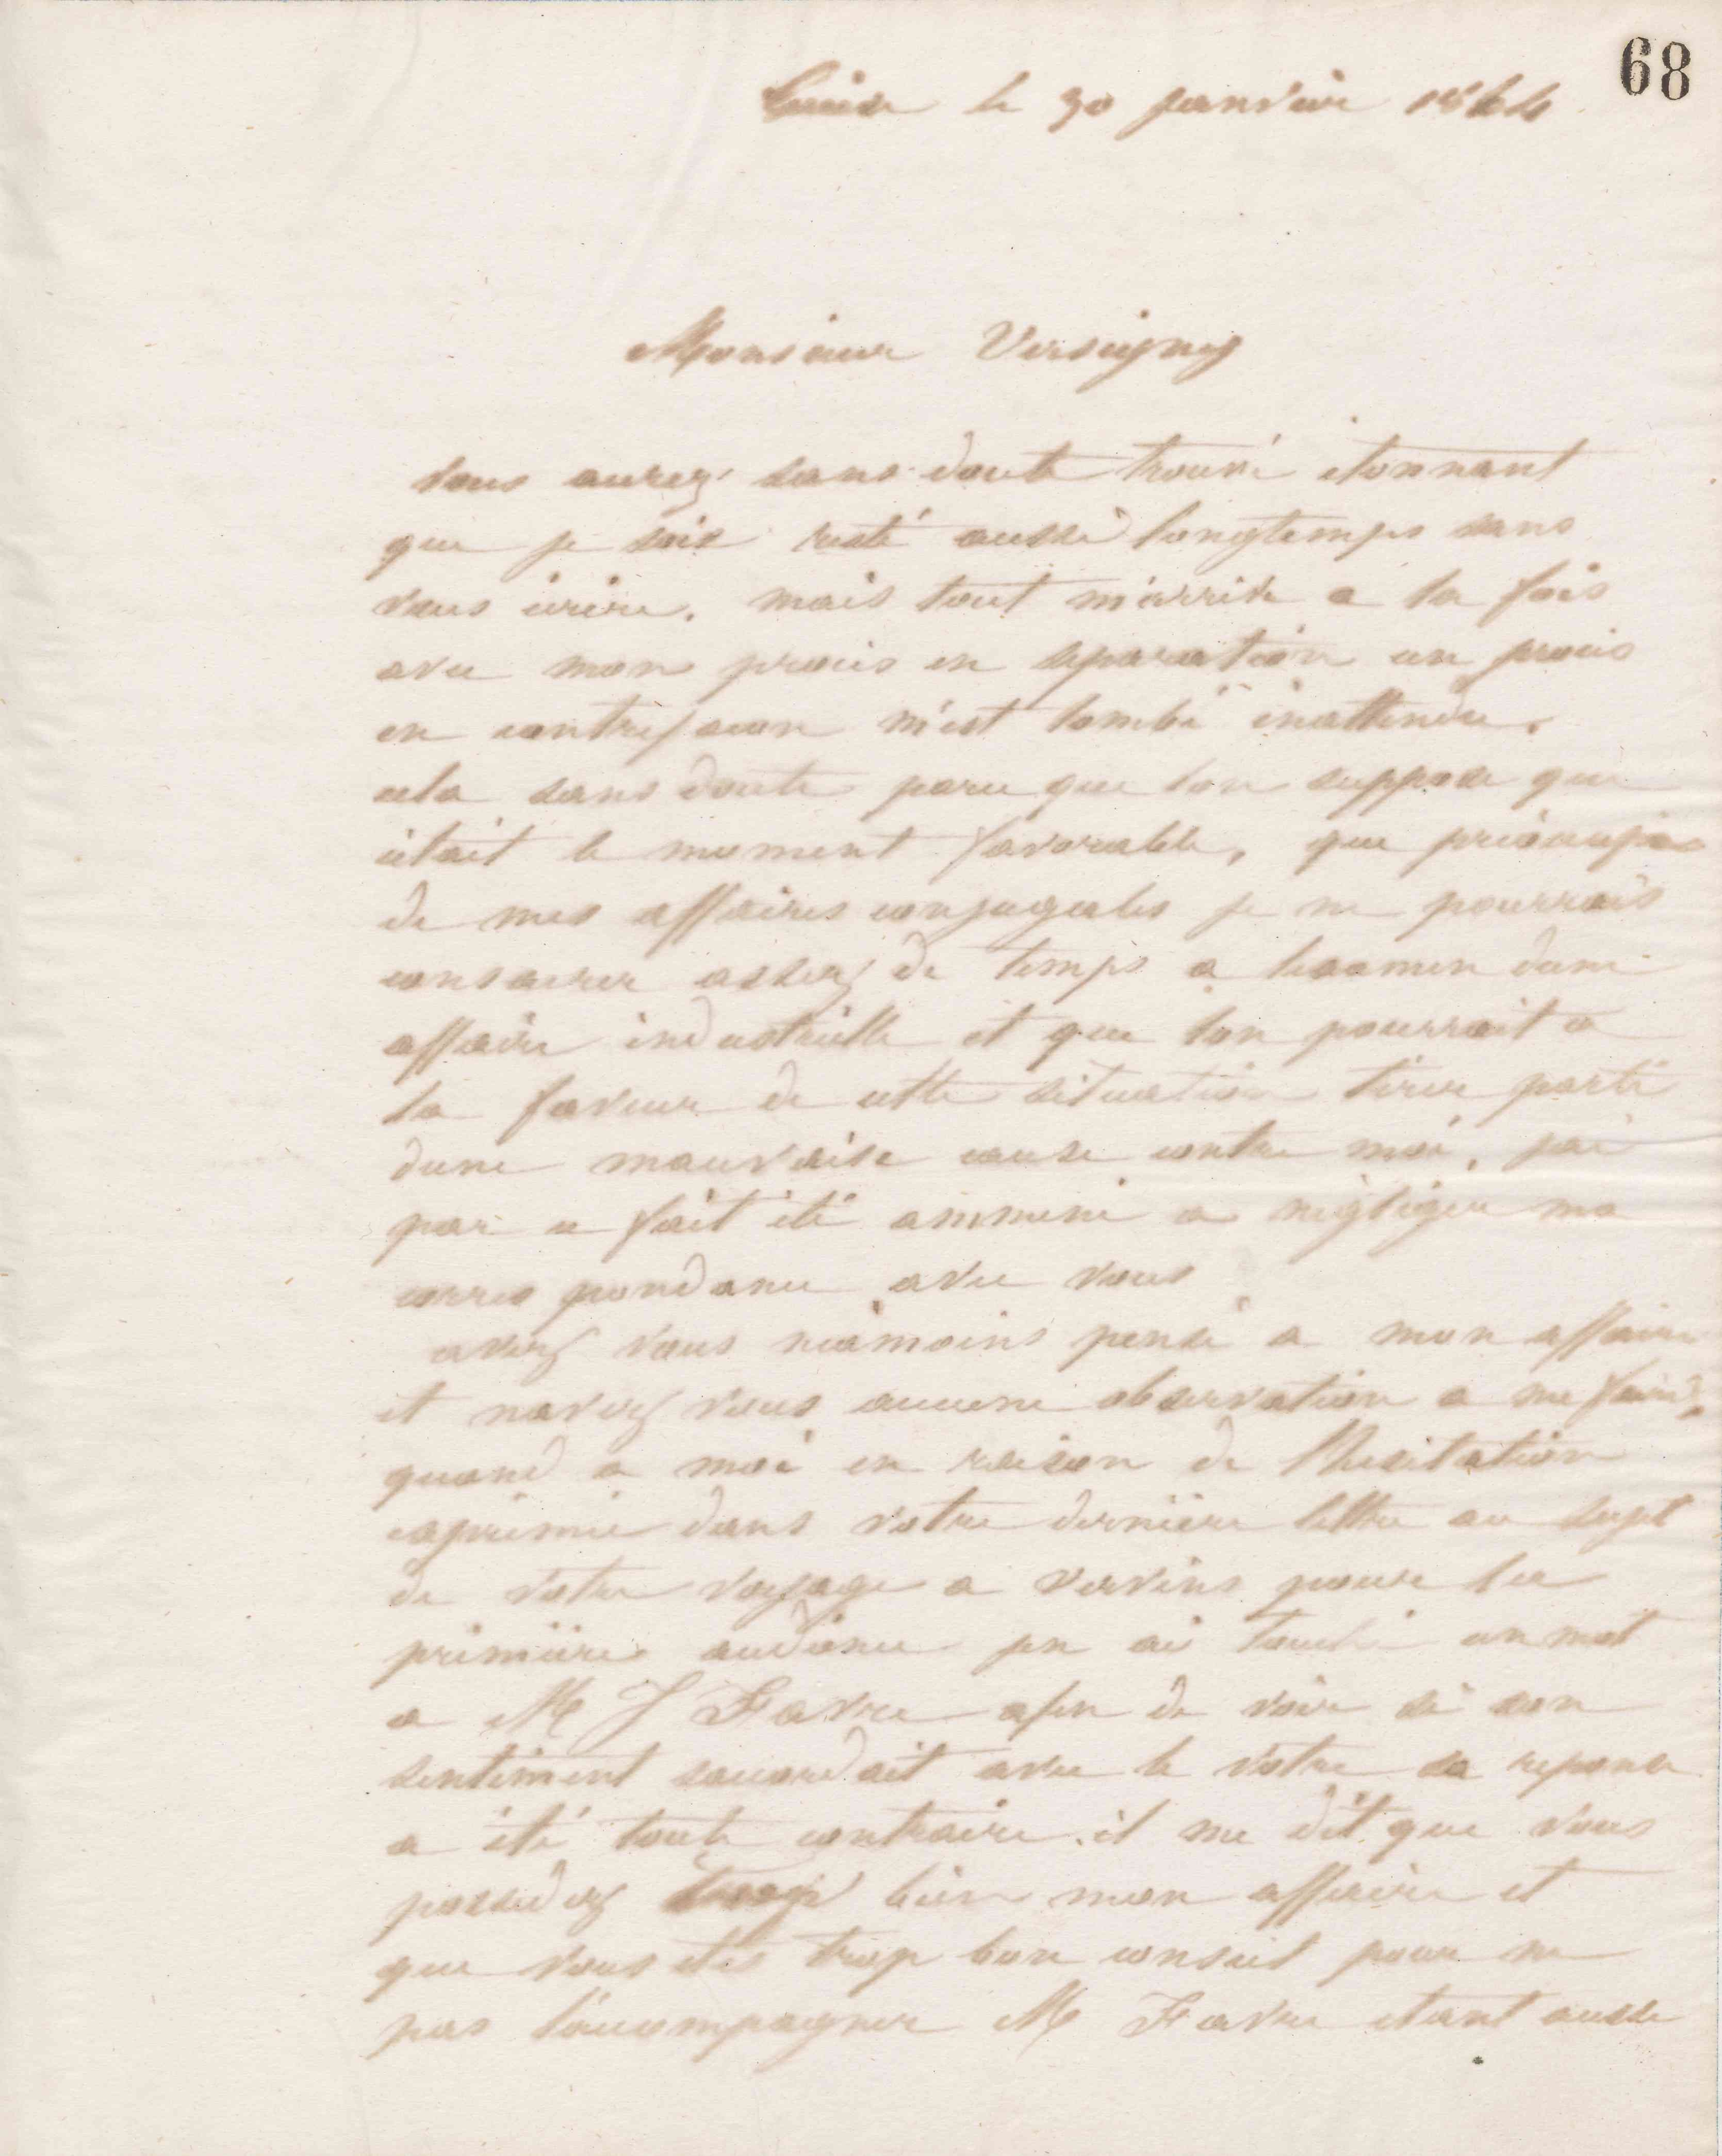 68
Guise le 30 janvier 1864
Monsieur Versigny
vous aurez sans doute trouvé etonnant
que je sois resté aussi longtemps sans
vous ecrire. mais tout m'arrive a la fois
avec mon procès en separation un procès
en contrefacon m'est tombé inattendu.
cela sans doute parce que lon suppose que
cétait le moment favorable, que préoccupé
de mes affaires conjugales je ne pourrais
consacrer assez de temps a lexamen dune
affaire industrielle et que lon pourrait a
la faveur de cette situation tirer parti
dune mauvaise cause contre moi, jai
par ce fait été ammené a négliger ma
correspondance avec vous
avez vous néamoins pensé a mon affaire
et navez vous aucune observation a me faire?
quand a moi en raison de lhesitation
exprimée dans votre dernière lettre au sujet
de votre voyage a vervins pour la
première audience jen ai touché un mot
a M J Favre afin de voir si son
sentiment saccordait avec le votre sa reponse
a été toute contraire. il me dit que vous
possedez trop bien mon affaire et
que vous etes trop bon conseil pour ne
pas l'accompagner M Favre etant aussi